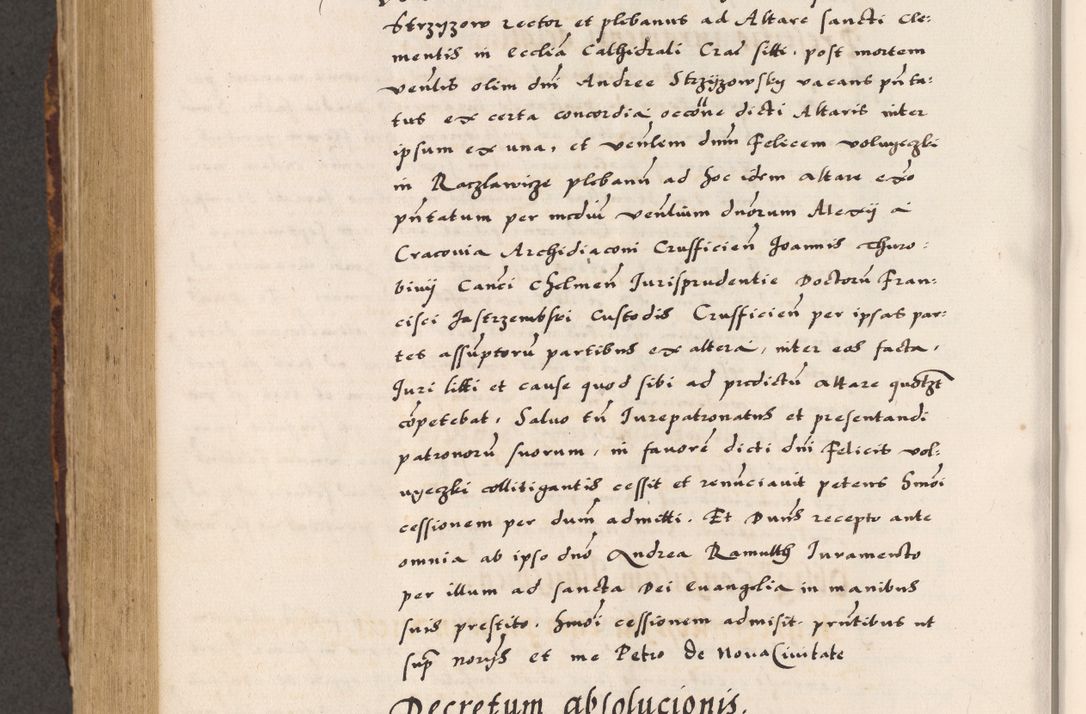 Strzyzow rector et plebanus ad Altare sancti Cle:
mentis in Ecclia Cathedrali Crac sitti. post mortem
venlis olim dni Andree Strzyzowsky vacans pnta:
tus ex certa concordia occone dicti Altaris inter
ipsum ex una, et venlem dnum Felicem voluyeczki
in Raczlawicze plebanu ad hoc idem altare exo
pntatum per mediu venlium dnorum Alexij a
Cracovia Archidiaconi Crusficien Joannis Thuro:
binij Canci Chelmen Jurisprudentie Doctoru Fran:
cisci Jastrzembski Custodis Crusficien per ipsas par:
tes assuptoru partibus ex altera, inter eos facta,
Juri litti et cause quod sibi ad predictu altare
copetebat, Salvo tn Jurepatronatus et presentandi
patronoru suorum, in favore dicti dni Felicis vol:
uyeczki collitigantis cessit et renuciavit petens hmoi
cessionem per dum admitti. Et Duns recepto ante
omnia ab ipso dno Andrea Ramulth Juramento
per illum ad sancta Dei evangelia in manibus
suis prestito. hmoi cessionem admisit. prntibus ut
sup norijs et me Petro de Nova Civitate
Decretum absolucionis.